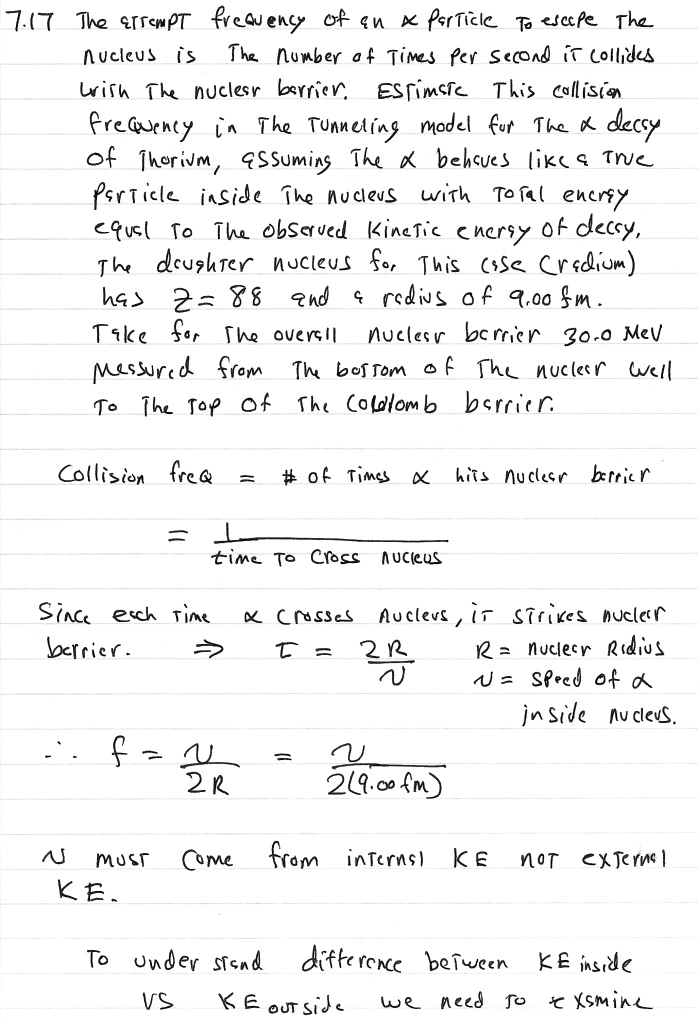 7.17 The attempt frequency of an α particle to escape the
nucleus is the number of times per second it collides
with the nuclear barrier. Estimate this collision
frequency in the tunneling model for the α decay
of Thorium, assuming the α behaves like a true
particle inside the nucleus with total energy
equal to the observed kinetic energy of decay.
The daughter nucleus for this case (radium)
has Z = 88 and a radius of 9.00 fm.
Take for the overall nuclear barrier 30.0 MeV
measured from the bottom of the nuclear well
to the top of the Coulomb barrier.
Collision freq = # of times α hits nuclear barrier
= 1
time to cross nucleus
Since each time α crosses nucleus, it strikes nuclear
barrier. ⇒ τ = 2R/v R = nuclear Radius
v = speed of α
inside nucleus.
∴ f = v/2R = v/2(9.00 fm)
v must come from internal KE not external
KE.
To under stand difference between KE inside
vs KE outside we need to examine